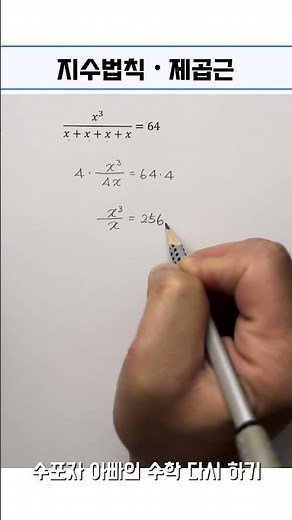 지수법칙・제곱근
x³/(x + x + x + x) = 64
4 · x³/4x = 64 · 4
x³/x = 256
수포자 아빠의 수학 다시 하기